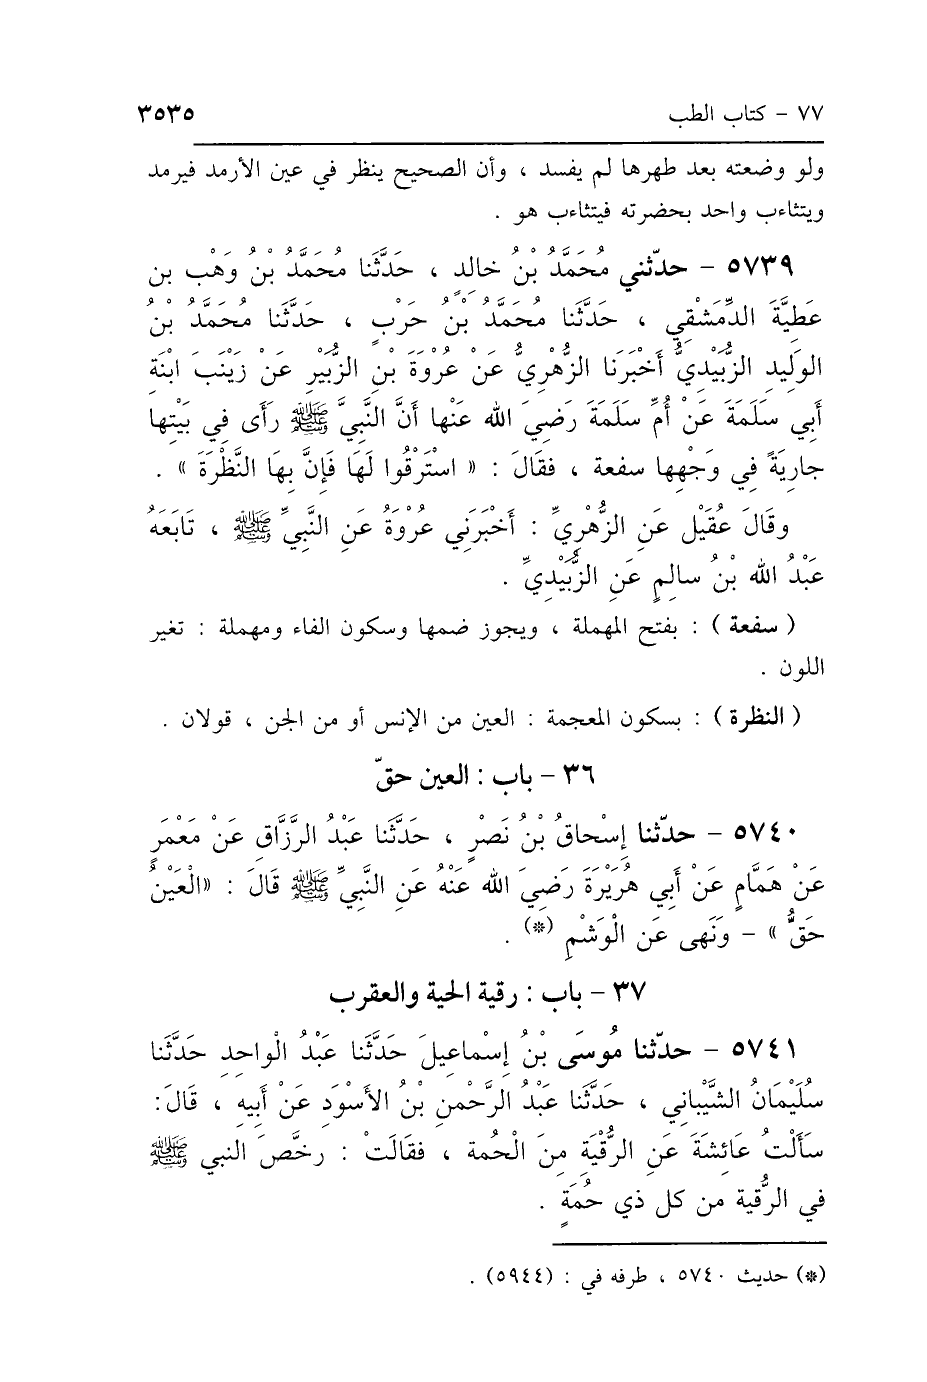 ٧٧ - كتاب الطب ٣٥٣٥
ولو وضعته بعد طهرها لم يفسد ، وأن الصحيح ينظر في عين الأرمد فيرمد
ويتثاءب واحد بحضرته فيتثاءب هو .
٥٧٣٩ - حدّثني مُحَمَّدُ بْنُ خالِدٍ ، حَدَّثَنا مُحَمَّدُ بْنُ وَهْبِ بن
عَطِيَّةَ الدِّمَشْقِي ، حَدَّثَنا مُحَمَّدُ بْنُ حَرْبٍ ، حَدَّثَنا مُحَمَّدُ بْنُ
الوَلِيدِ الزُّبَيْدِيُّ أَخْبَرَنا الزُّهْرِيُّ عَنْ عُرْوَةَ بْنِ الزُّبَيْرِ عَنْ زَيْنَبَ ابْنَةِ
أَبِي سَلَمَةَ عَنْ أُمِّ سَلَمَةَ رَضِيَ الله عَنْها أَنَّ النَّبِيَّ ﷺ رَأَى فِي بَيْتِها
جارِيَةً فِي وَجْهِها سفعة ، فقَالَ : « اسْتَرْقُوا لَهَا فَإِنَّ بِهَا النَّظْرَةَ » .
وقَالَ عُقَيْل عَنِ الزُّهْرِيِّ : أَخْبَرَنِي عُرْوَةُ عَنِ النَّبِيِّ ﷺ ، تَابَعَهُ
عَبْدُ الله بْنُ سالِمٍ عَنِ الزُّبَيْدِيِّ .
( سفعة ) : بفتح المهملة ، ويجوز ضمها وسكون الفاء ومهملة : تغير
اللون .
( النظرة ) : بسكون المعجمة : العين من الإنس أو من الجن ، قولان .
٣٦ - باب : العين حقّ
٥٧٤٠ - حدّثنا إِسْحاقُ بْنُ نَصْرٍ ، حَدَّثَنا عَبْدُ الرَّزَّاقِ عَنْ مَعْمَرٍ
عَنْ هَمَّامٍ عَنْ أَبِي هُرَيْرَةَ رَضِيَ الله عَنْهُ عَنِ النَّبِيِّ ﷺ قَالَ : «الْعَيْنُ
حَقٌّ » - وَنَهى عَنِ الْوَشْمِ (*) .
٣٧ - باب : رقية الحية والعقرب
٥٧٤١ - حدّثنا مُوسَى بْنُ إِسْماعِيلَ حَدَّثَنا عَبْدُ الْواحِدِ حَدَّثَنا
سُلَيْمَانُ الشَّيْبانِي ، حَدَّثَنا عَبْدُ الرَّحْمنِ بْنُ الأَسْوَدِ عَنْ أَبِيهِ ، قَالَ:
سَأَلْتُ عَائِشَةَ عَنِ الرُّقْيَةِ مِنَ الْحُمة ، فقَالَتْ : رخَّصَ النبي ﷺ
في الرُّقية من كل ذي حُمَةٍ .
(*) حديث ٥٧٤٠ ، طرفه في : (٥٩٤٤) .